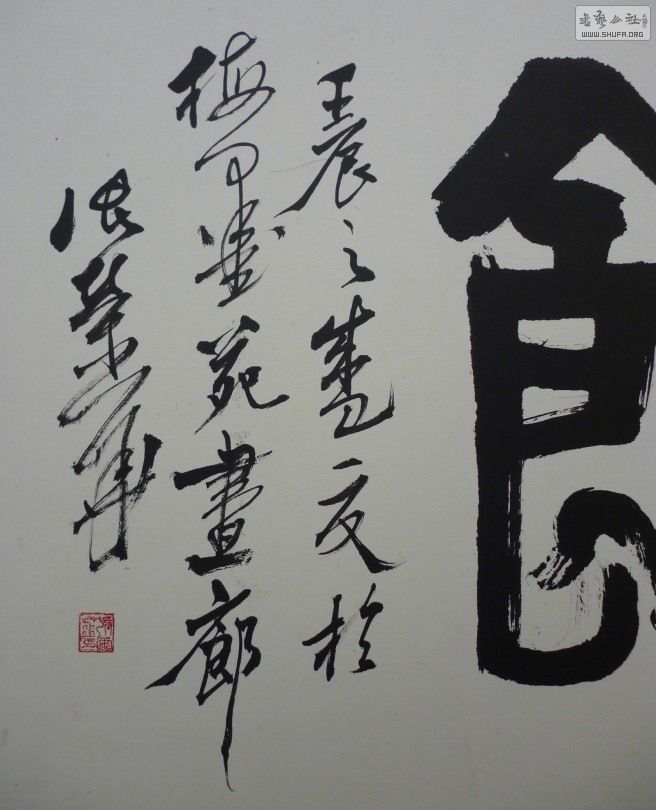 書藝公社
WWW.SHUFA.ORG
食
壬辰之盛夏於
梅苑畫廊
張榮